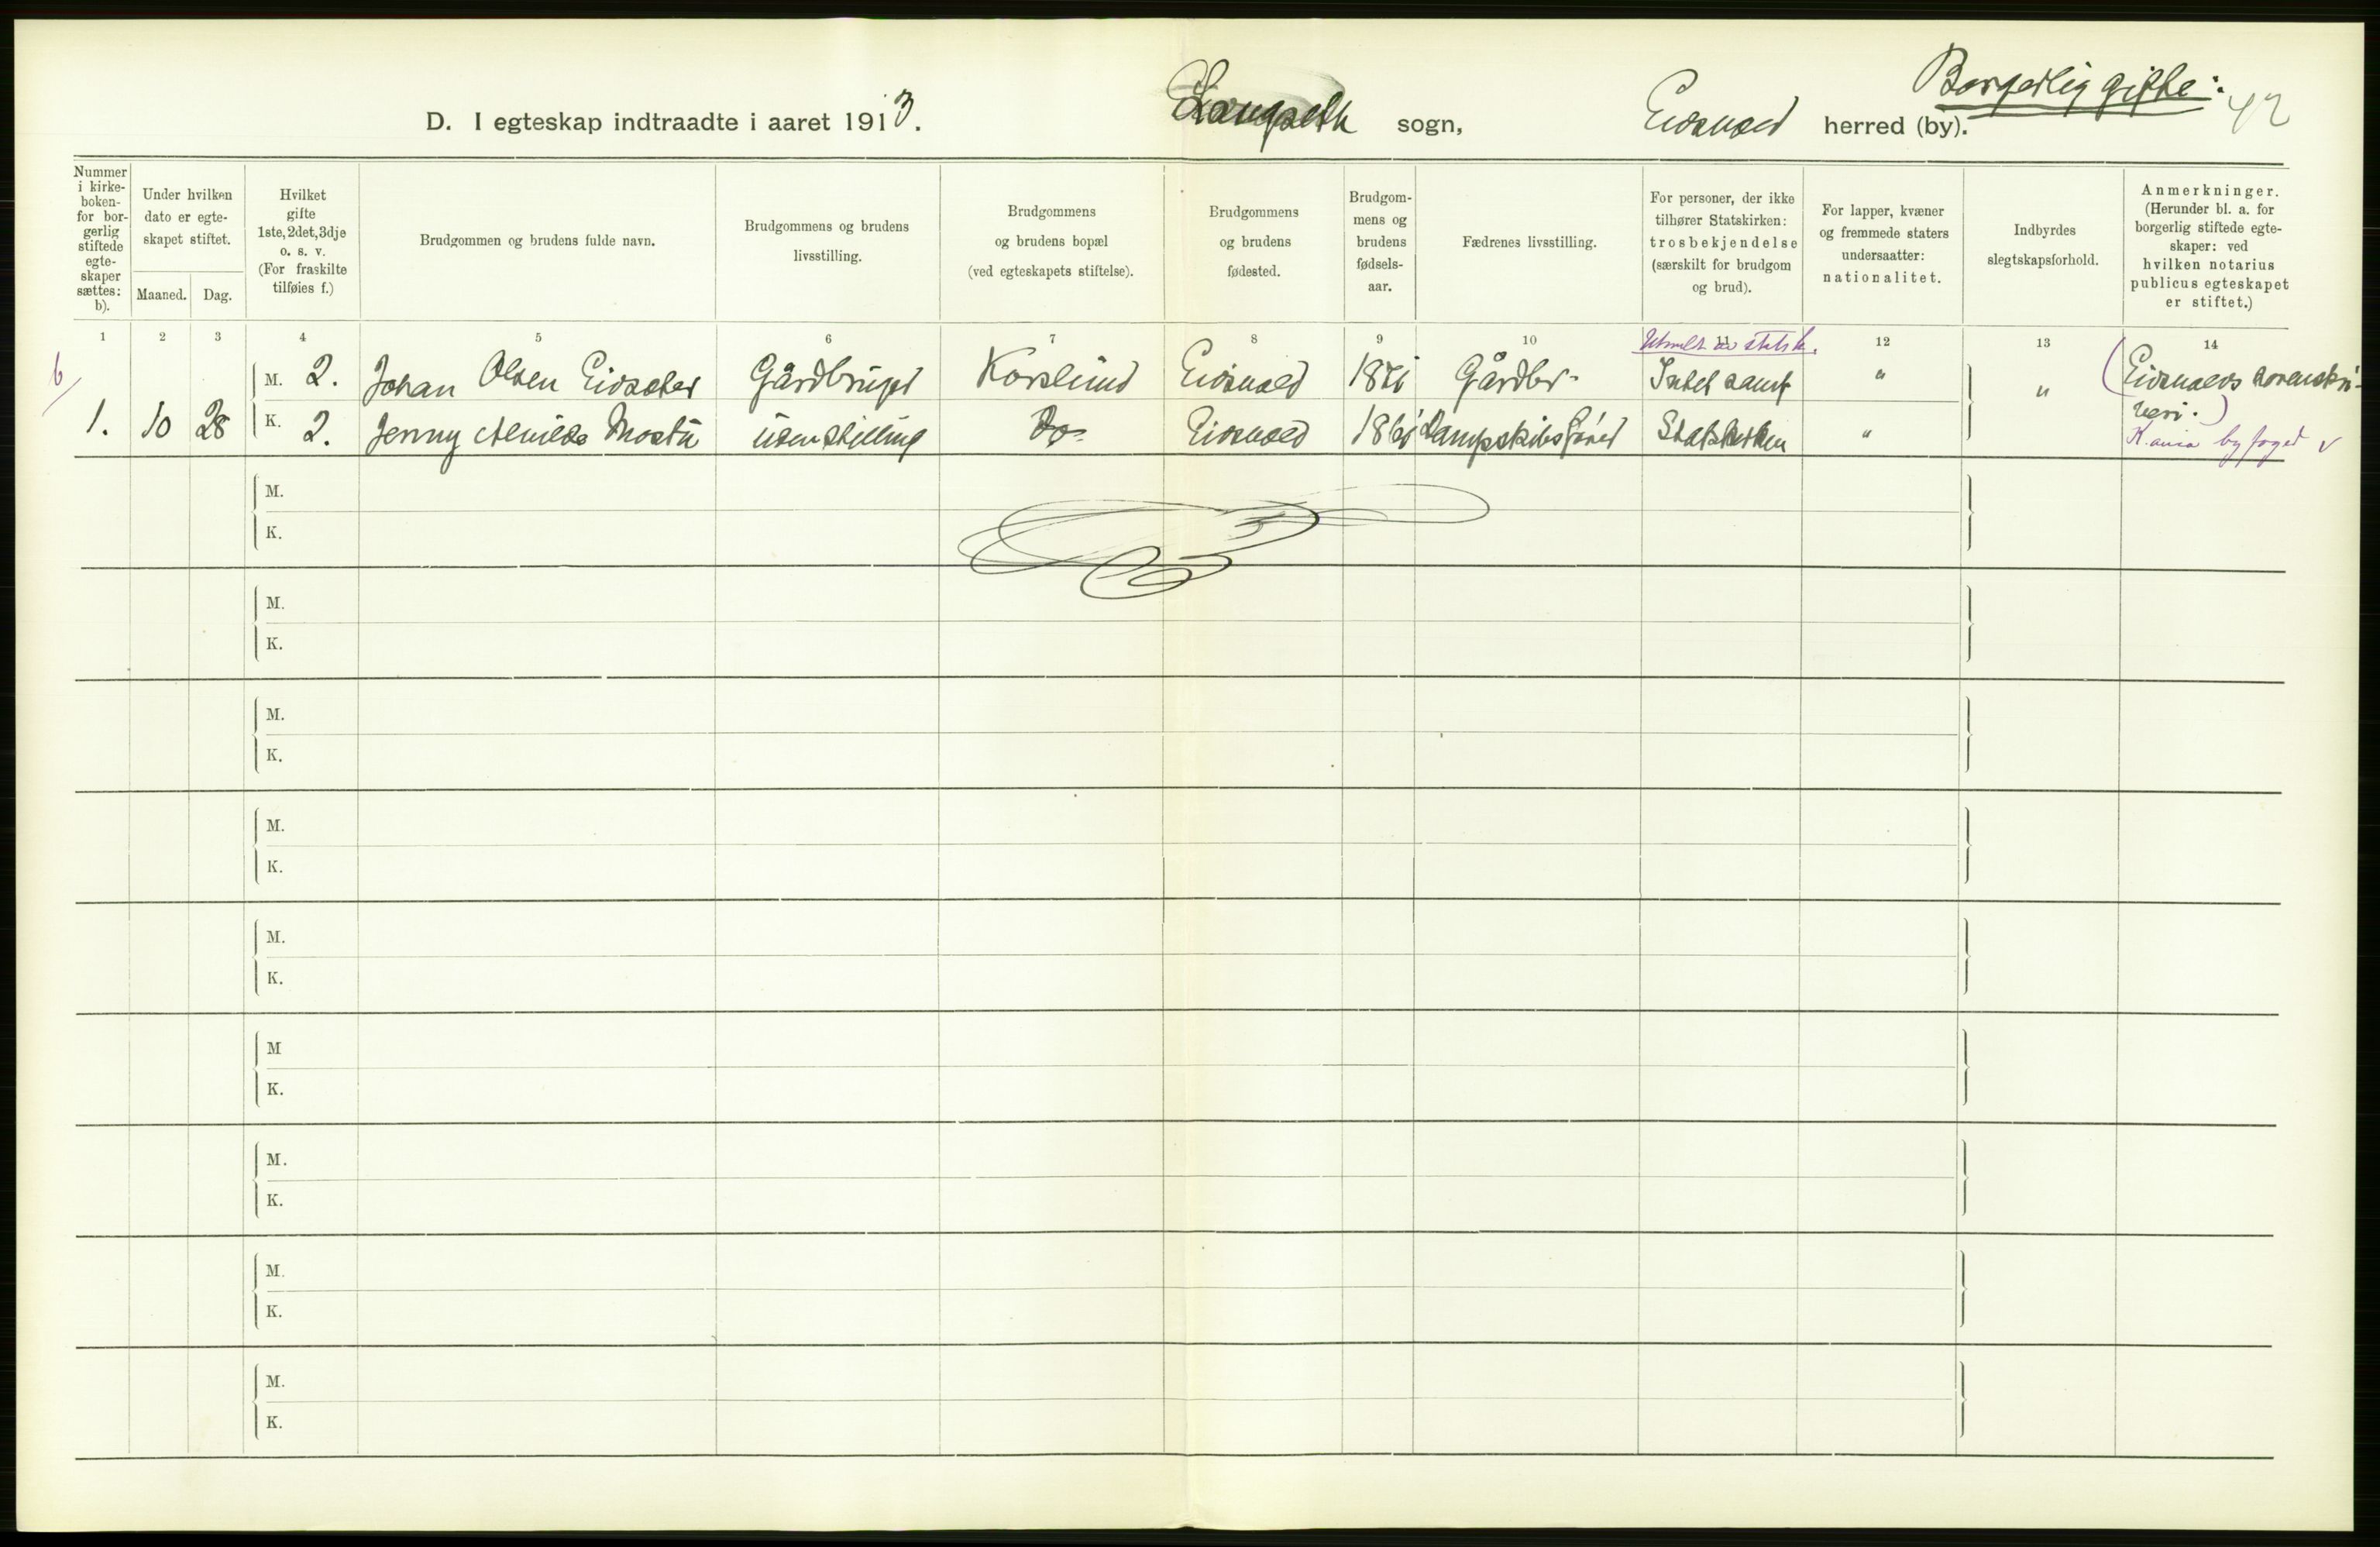 Borgerlig gifte: 42
D. I egteskap indtraadte i aaret 1913. Langseth sogn, Eidsvold herred (by).
Nummer i kirke-boken- for bor-gerlig stiftede egte-skaper sættes: b).
Under hvilken dato er egte-skapet stiftet.
Maaned. Dag.
Hvilket gifte 1ste, 2det, 3dje o. s. v. (For fraskilte tilføies f.)
Brudgommen og brudens fulde navn.
Brudgommens og brudens livsstilling.
Brudgommens og brudens bopæl (ved egteskapets stiftelse).
Brudgommens og brudens fødested.
Brudgom-mens og brudens fødsels-aar.
Fædrenes livsstilling.
For personer, der ikke tilhører Statskirken: trosbekjendelse (særskilt for brudgom og brud).
For lapper, kvæner og fremmede staters undersaatter: nationalitet.
Indbyrdes slegtskapsforhold.
Anmerkninger. (Herunder bl. a. for borgerlig stiftede egte-skaper: ved hvilken notarius publicus egteskapet er stiftet.)
1 2 3 4 5 6 7 8 9 10 11 12 13 14
Utmeldt av statsk.
b
M. 2. Johan Olsen Gårdbruger Korslund Eidsvold Gårdbr. Intet samf " " (Eidsvolds sorenskri-
veri.)
1. 10 28 K. 2. Jenny Uden stilling Do Eidsvold Dampskibsfører Statskirken "
K.ania byfoged v
M.
K.
M.
K.
M.
K.
M.
K.
M.
K.
M
K.
M.
K.
M.
K.
M.
K.